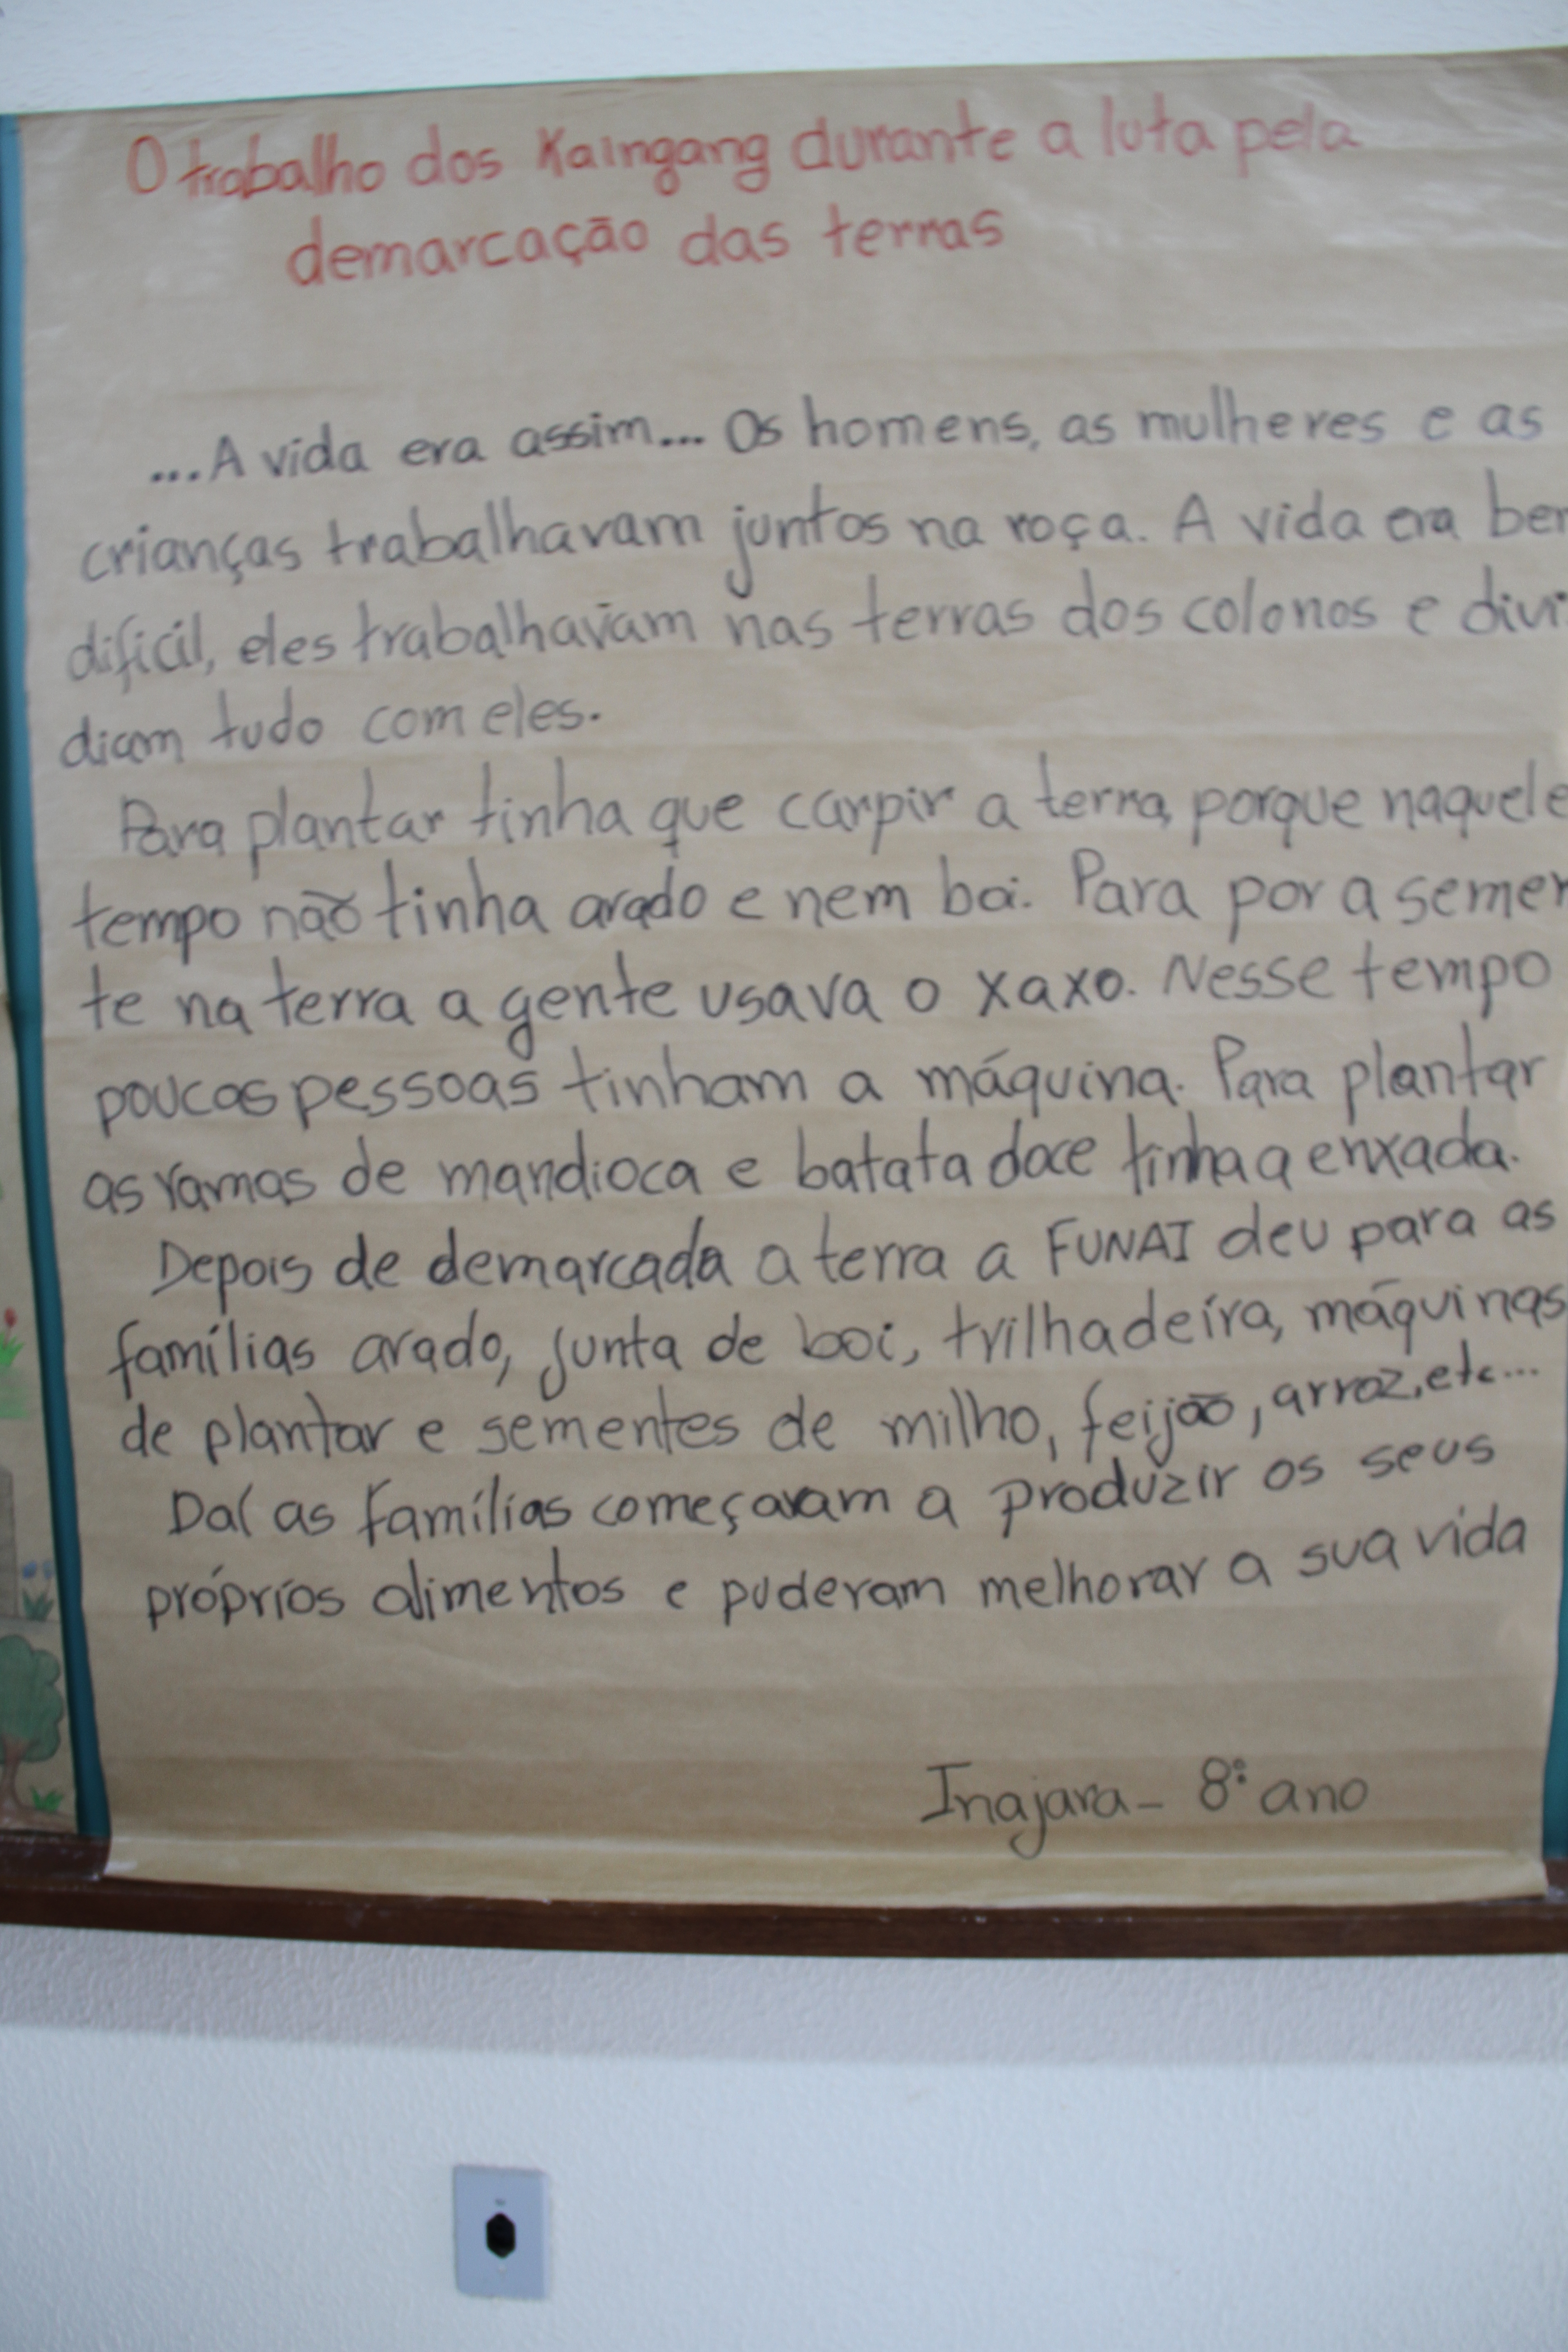 O trabalho dos Kaingang durante a luta pela
demarcação das terras
...A vida era assim... Os homens, as mulheres e as
crianças trabalhavam juntos na roça. A vida era ber
dificil, eles trabalhavam nas terras dos colonos e divi
diam tudo com eles.
Para plantar tinha que carpir a terra, porque naquele
tempo não tinha arado e nem boi. Para por a semen
te na terra a gente usava o xaxo. Nesse tempo
poucas pessoas tinham a máquina. Para plantar
as ramas de mandioca e batata doce tinha a enxada.
Depois de demarcada a terra a FUNAI deu para as
famílias arado, junta de boi, trilhadeira, máquinas
de plantar e sementes de milho, feijão, arroz, etc...
Daí as famílias começaram a produzir os seus
próprios alimentos e puderam melhorar a sua vida
Inajara - 8º ano